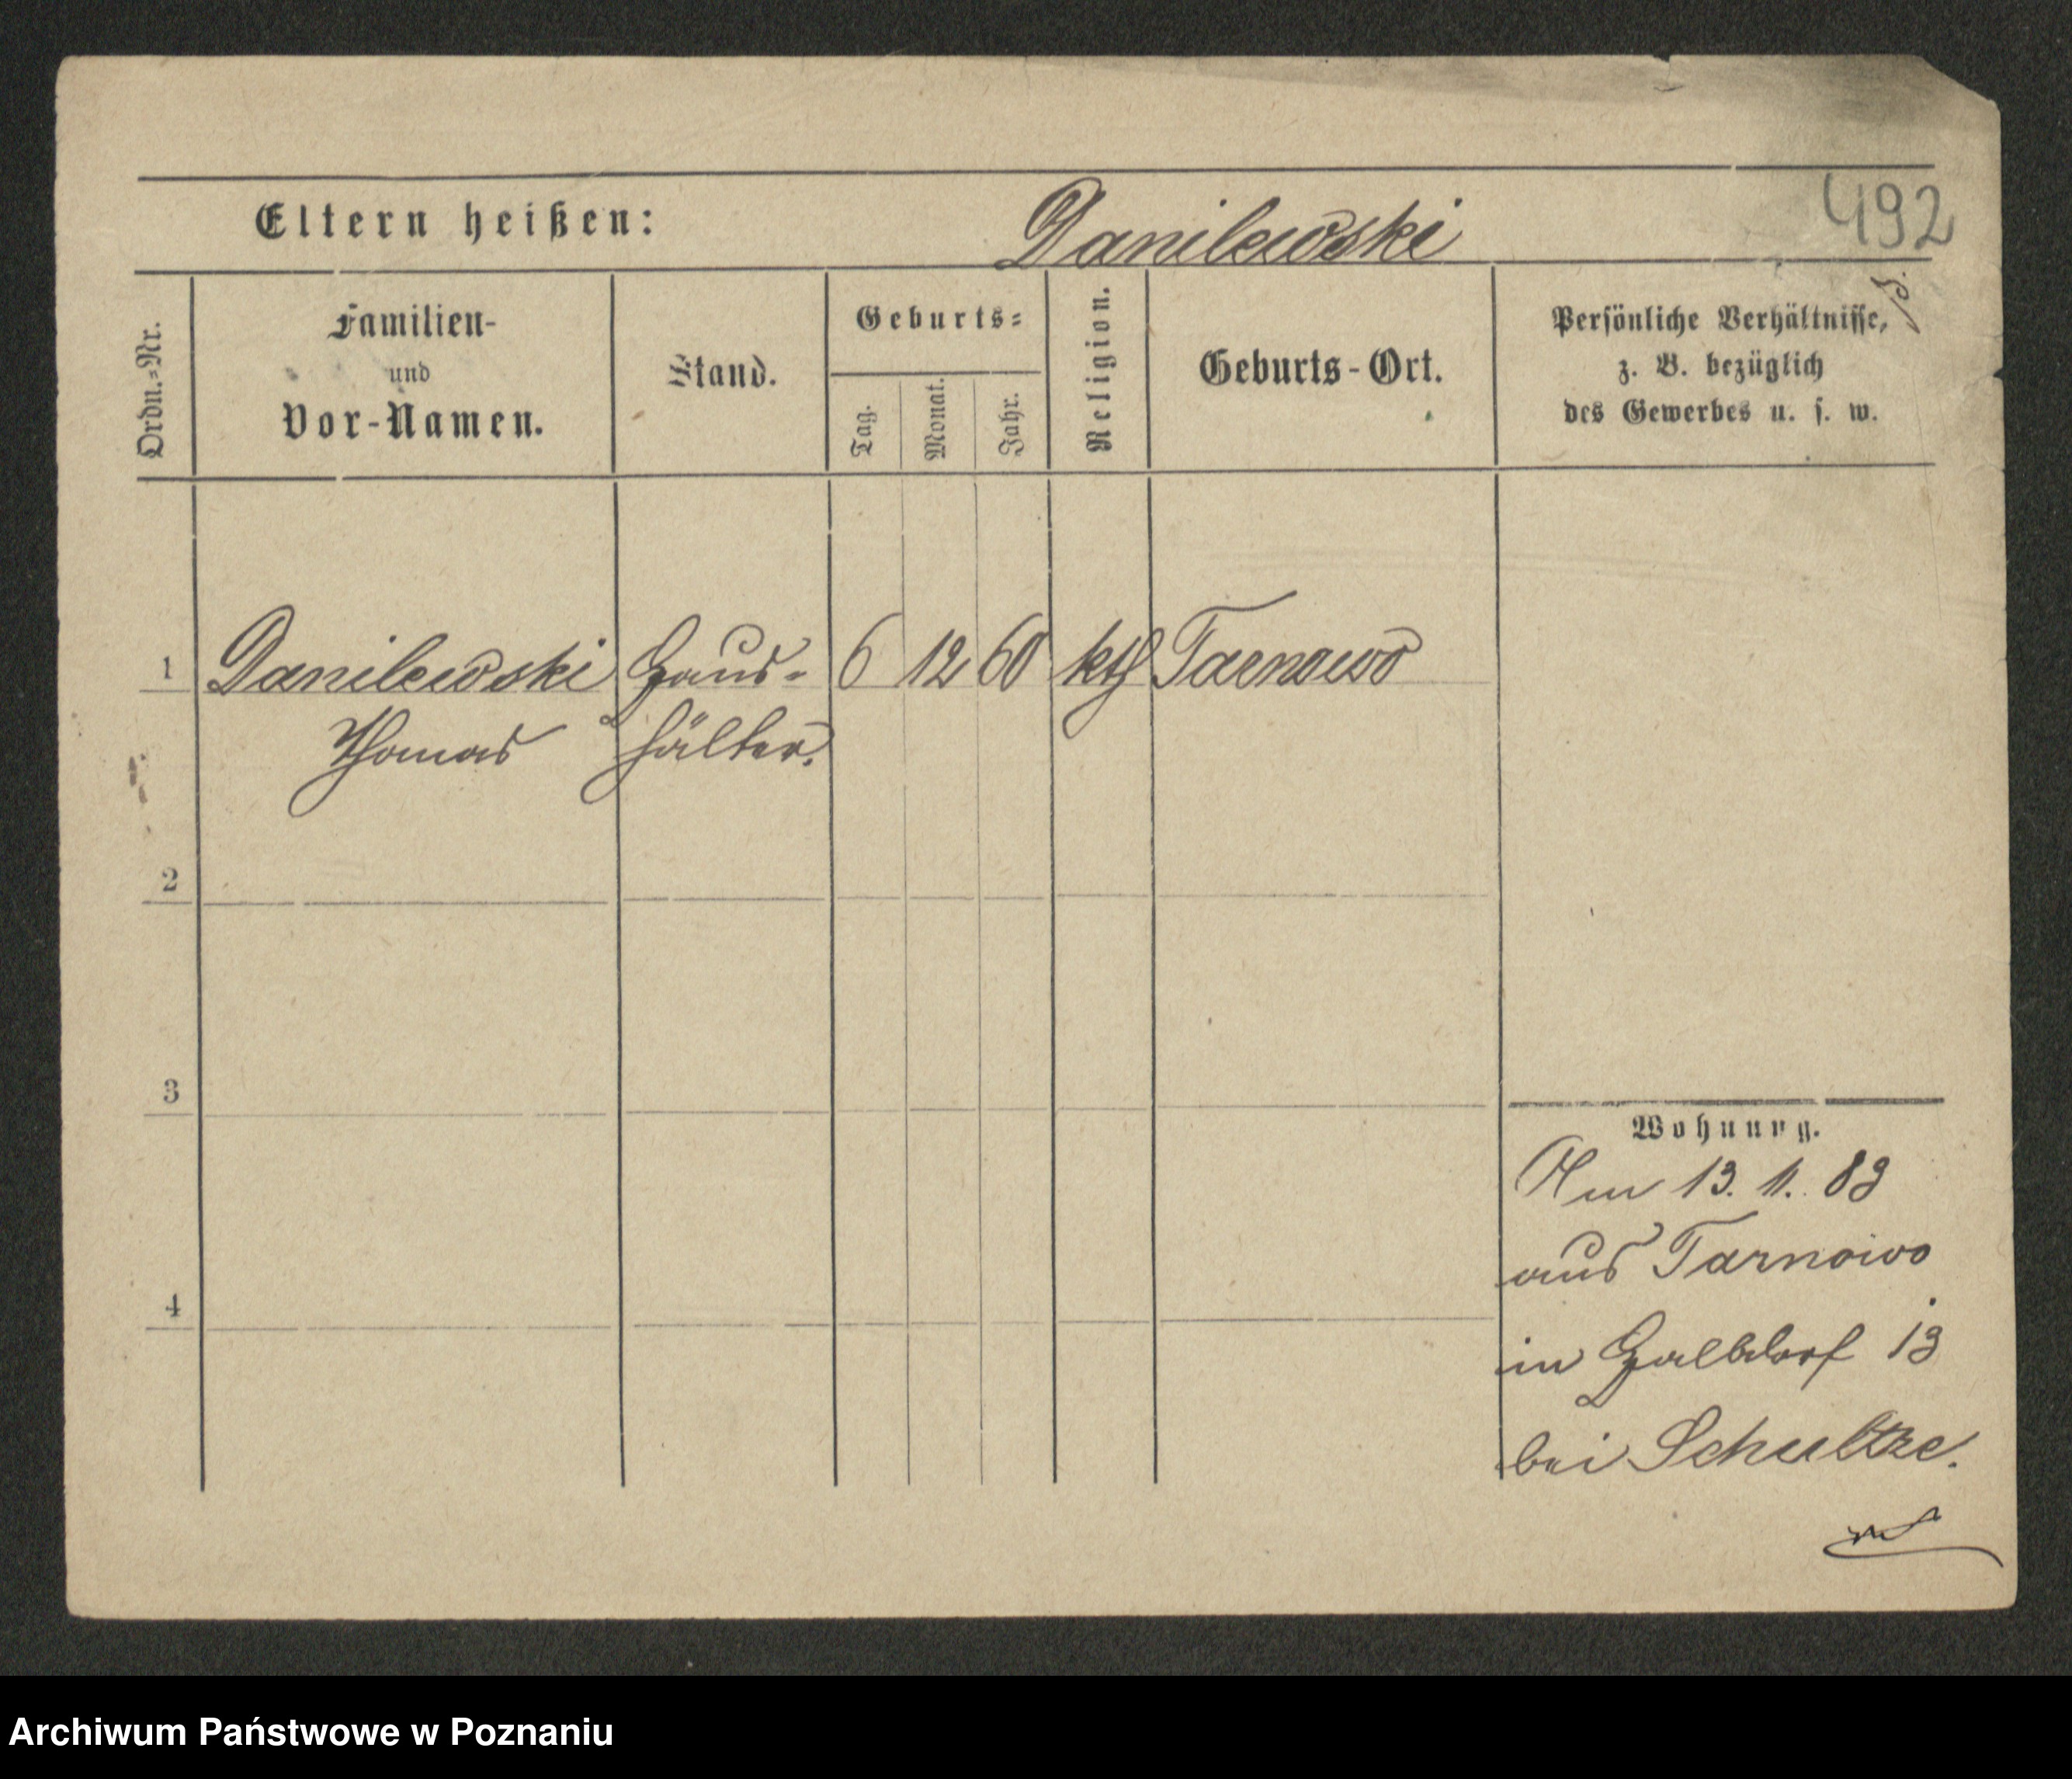 492
Eltern heißen: Danilewski
Ordn.=Nr.
Familien-
und
Vor-Namen.
Stand.
Geburts=
Tag.
Monat.
Jahr.
Religion.
Geburts-Ort.
Persönliche Verhältnisse,
z. B. bezüglich
des Gewerbes u. s. w.
1 Danilewski Haus- 6 12 60 kth Tarnowo
Thomas hälter.
2
3
4
Wohnung.
Am 13. 11. 83
aus Tarnowo
in Halbdorf 13
bei Schultze.
Archiwum Państwowe w Poznaniu